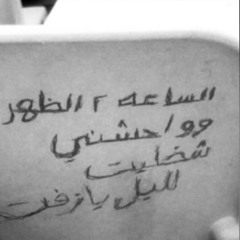 الساعه ٢ الظهر
وواحشني
شخليت
لليل يا زفت